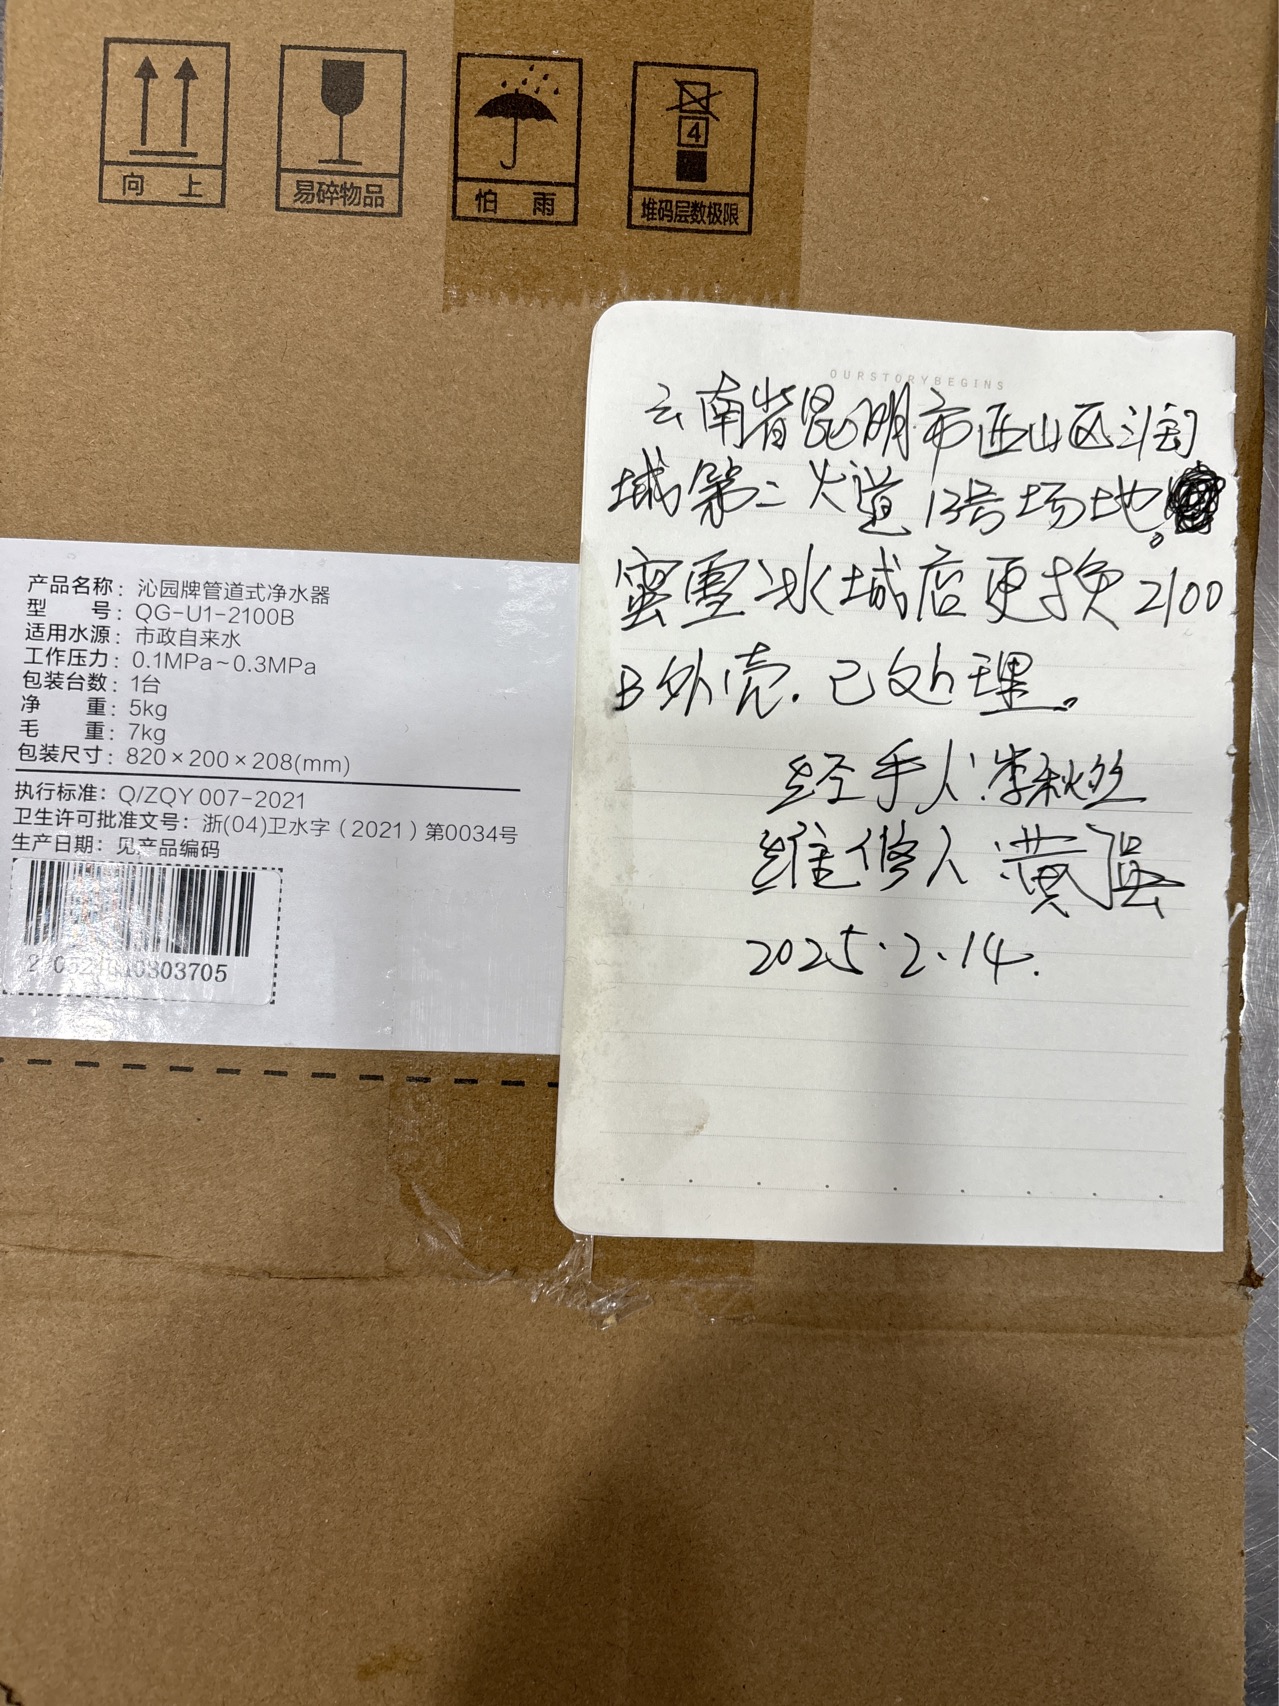 向 上
易碎物品
怕 雨
4
堆码层数极限
OURSTORYBEGINS
云南省昆明市西山区润
城第二大道13号场地。
蜜雪冰城店更换2100
B外壳.已处理。
经手人:李秋丝
维修人:黄强
2025.2.14.
产品名称:沁园牌管道式净水器
型 号:QG-U1-2100B
适用水源:市政自来水
工作压力:0.1MPa~0.3MPa
包装台数:1台
净 重:5kg
毛 重:7kg
包装尺寸:820×200×208(mm)
执行标准:Q/ZQY 007-2021
卫生许可批准文号:浙(04)卫水字(2021)第0034号
生产日期:见产品编码